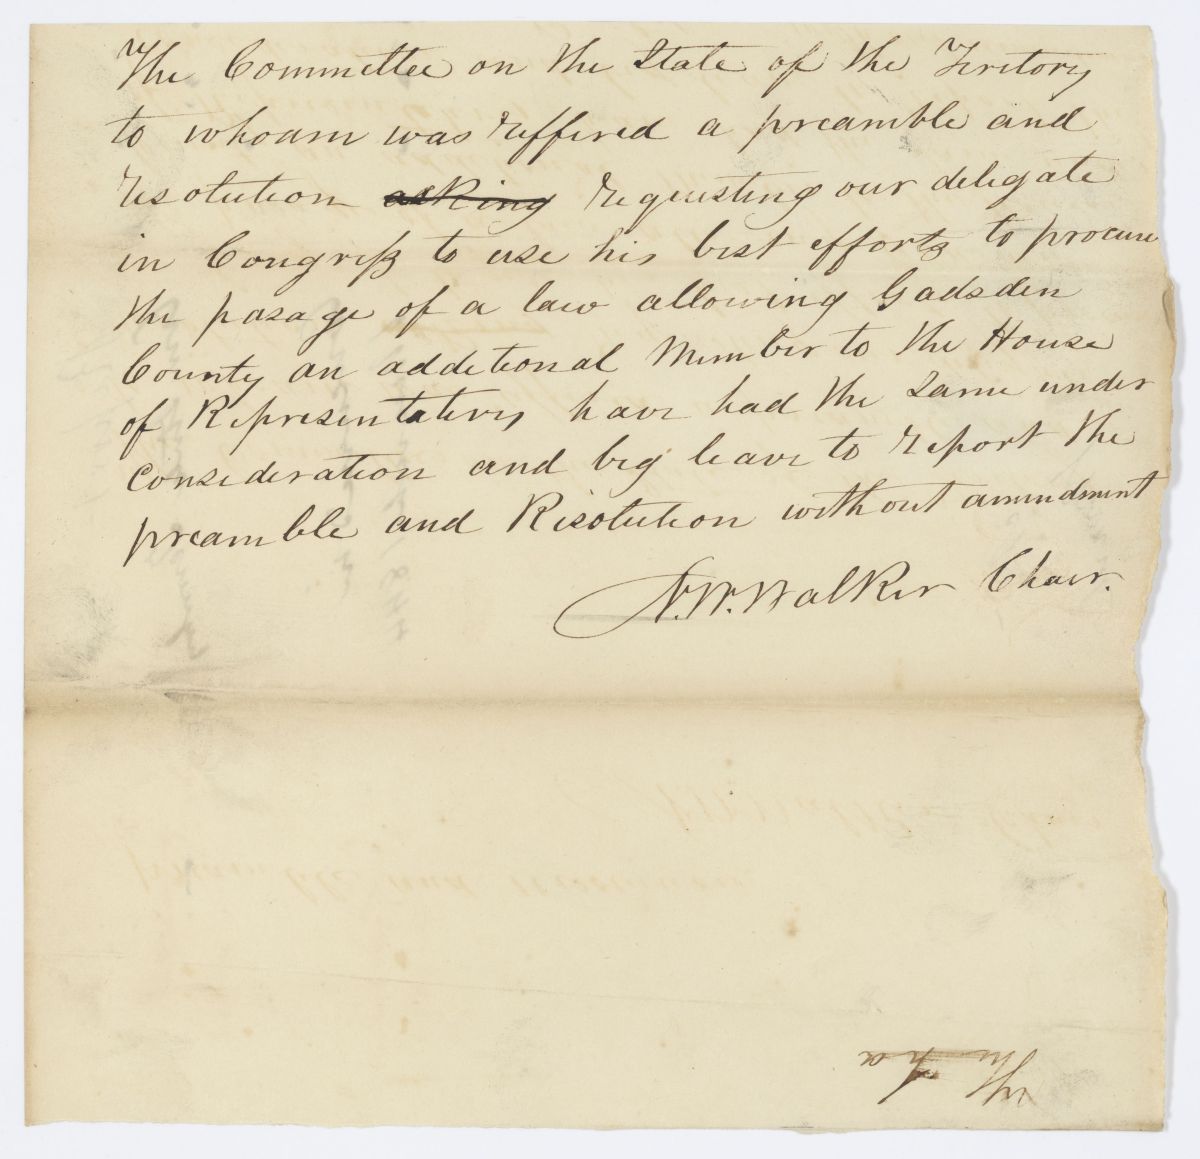 The Committee on the State of the Teritory
to whoam was reffered a preamble and
resolution asking requesting our delegate
in Congress to use his best efforts to procure
the pasage of a law allowing Gadsden
County an additional Member to the House
of Representatives have had the same under
consideration and beg leave to report the
preamble and Resolution without amendment
N.W. Walker Chair.